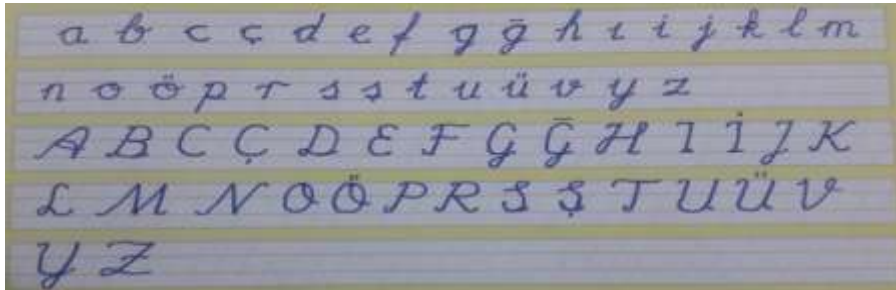 a b c ç d e f g ğ h ı i j k l m
n o ö p r s ş t u ü v y z
A B C Ç D E F G Ğ H I İ J K
L M N O Ö P R S Ş T U Ü V
Y Z